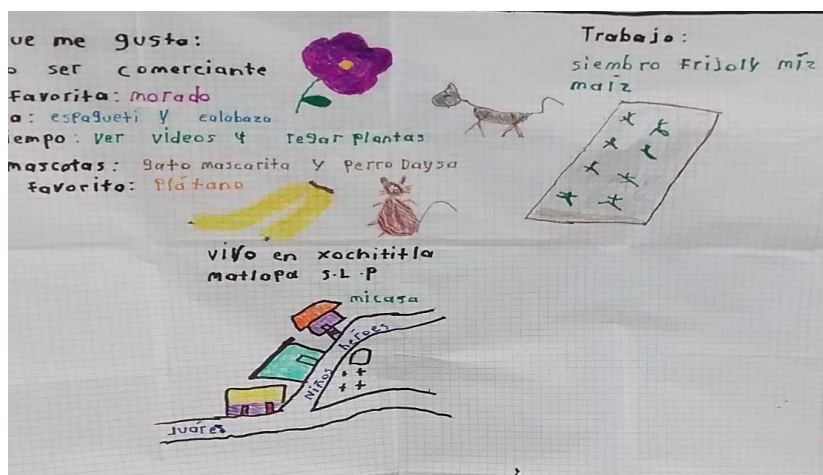 ue me gusta:
o ser comerciante
favorita: morado
a: espagueti y calabaza
iempo: ver videos y regar plantas
mascotas: gato mascarita y perro Daysa
favorito: Plátano
Trabajo:
siembro Frijoly míz
maíz
vivo en xochititla
matlapa S.L.P
micasa
Niños héroes
Juáres